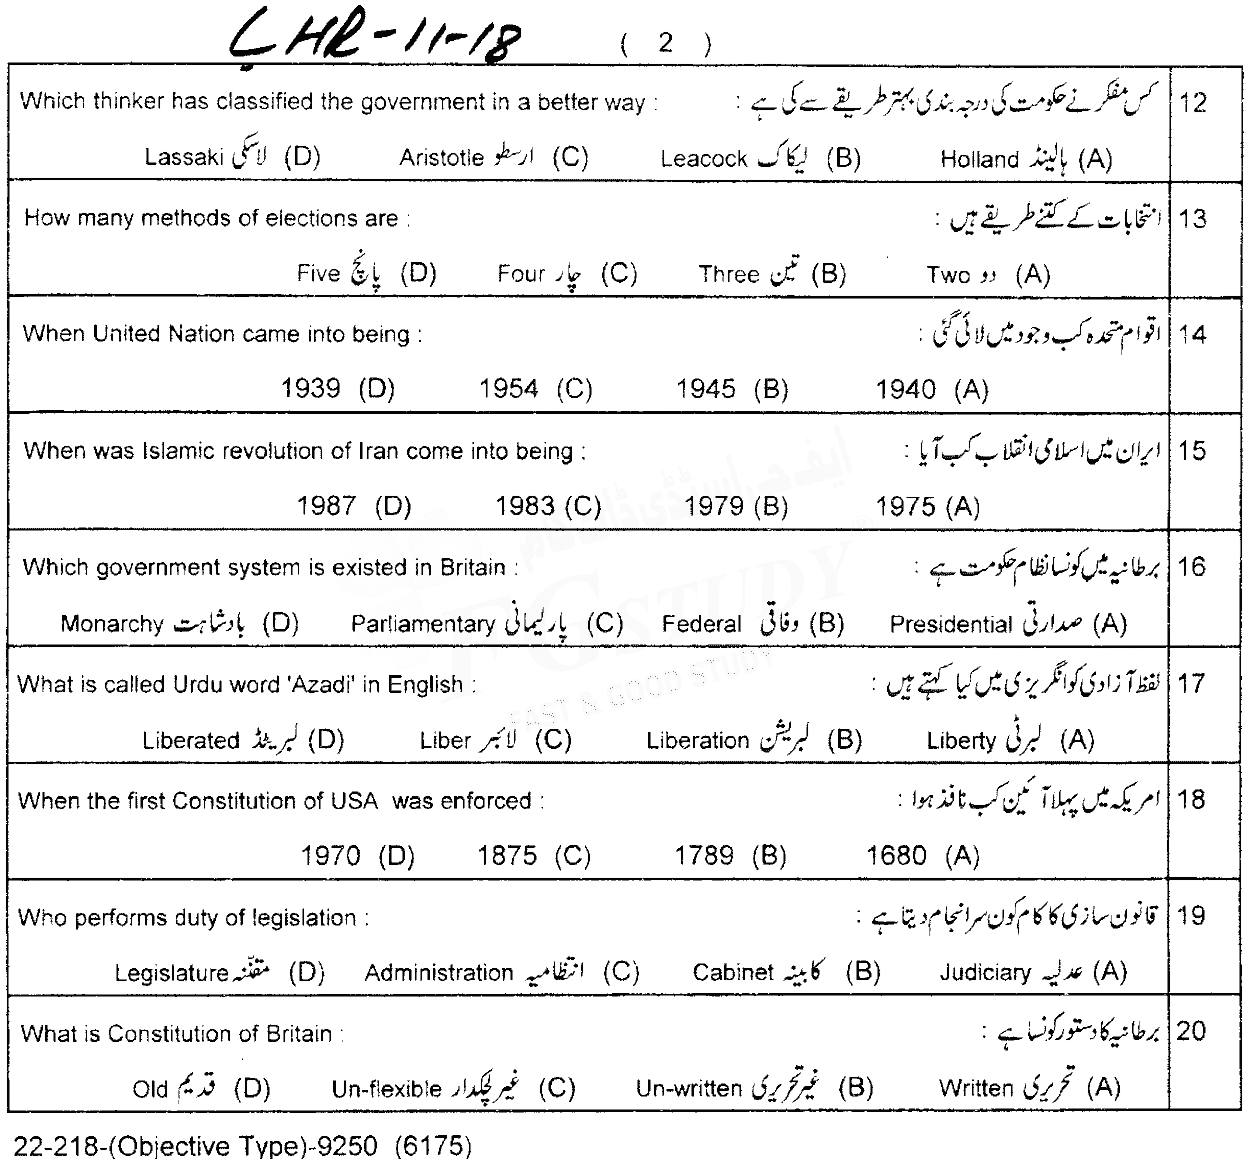 LHR-11-18 ( 2 )
Which thinker has classified the government in a better way : کس مفکر نے حکومت کی درجہ بندی بہتر طریقے سے کی ہے : 12
Lassaki لاسکی (D) Aristotle ارسطو (C) Leacock لیکاک (B) Holland ہالینڈ (A)
How many methods of elections are : انتخابات کے کتنے طریقے ہیں : 13
Five پانچ (D) Four چار (C) Three تین (B) Two دو (A)
When United Nation came into being : اقوام متحدہ کب وجود میں لائی گئی : 14
1939 (D) 1954 (C) 1945 (B) 1940 (A)
When was Islamic revolution of Iran come into being : ایران میں اسلامی انقلاب کب آیا : 15
1987 (D) 1983 (C) 1979 (B) 1975 (A)
Which government system is existed in Britain : برطانیہ میں کونسا نظام حکومت ہے : 16
Monarchy بادشاہت (D) Parliamentary پارلیمانی (C) Federal وفاقی (B) Presidential صدارتی (A)
What is called Urdu word 'Azadi' in English : لفظ آزادی کو انگریزی میں کیا کہتے ہیں : 17
Liberated لبریٹڈ (D) Liber لائبر (C) Liberation لبریشن (B) Liberty لبرٹی (A)
When the first Constitution of USA was enforced : امریکہ میں پہلا آئین کب نافذ ہوا : 18
1970 (D) 1875 (C) 1789 (B) 1680 (A)
Who performs duty of legislation : قانون سازی کا کام کون سرانجام دیتا ہے : 19
Legislature مقنّنہ (D) Administration انتظامیہ (C) Cabinet کابینہ (B) Judiciary عدلیہ (A)
What is Constitution of Britain : برطانیہ کا دستور کونسا ہے : 20
Old قدیم (D) Un-flexible غیر لچکدار (C) Un-written غیر تحریری (B) Written تحریری (A)
22-218-(Objective Type)-9250 (6175)
FG STUDY
FAST & GOOD STUDY